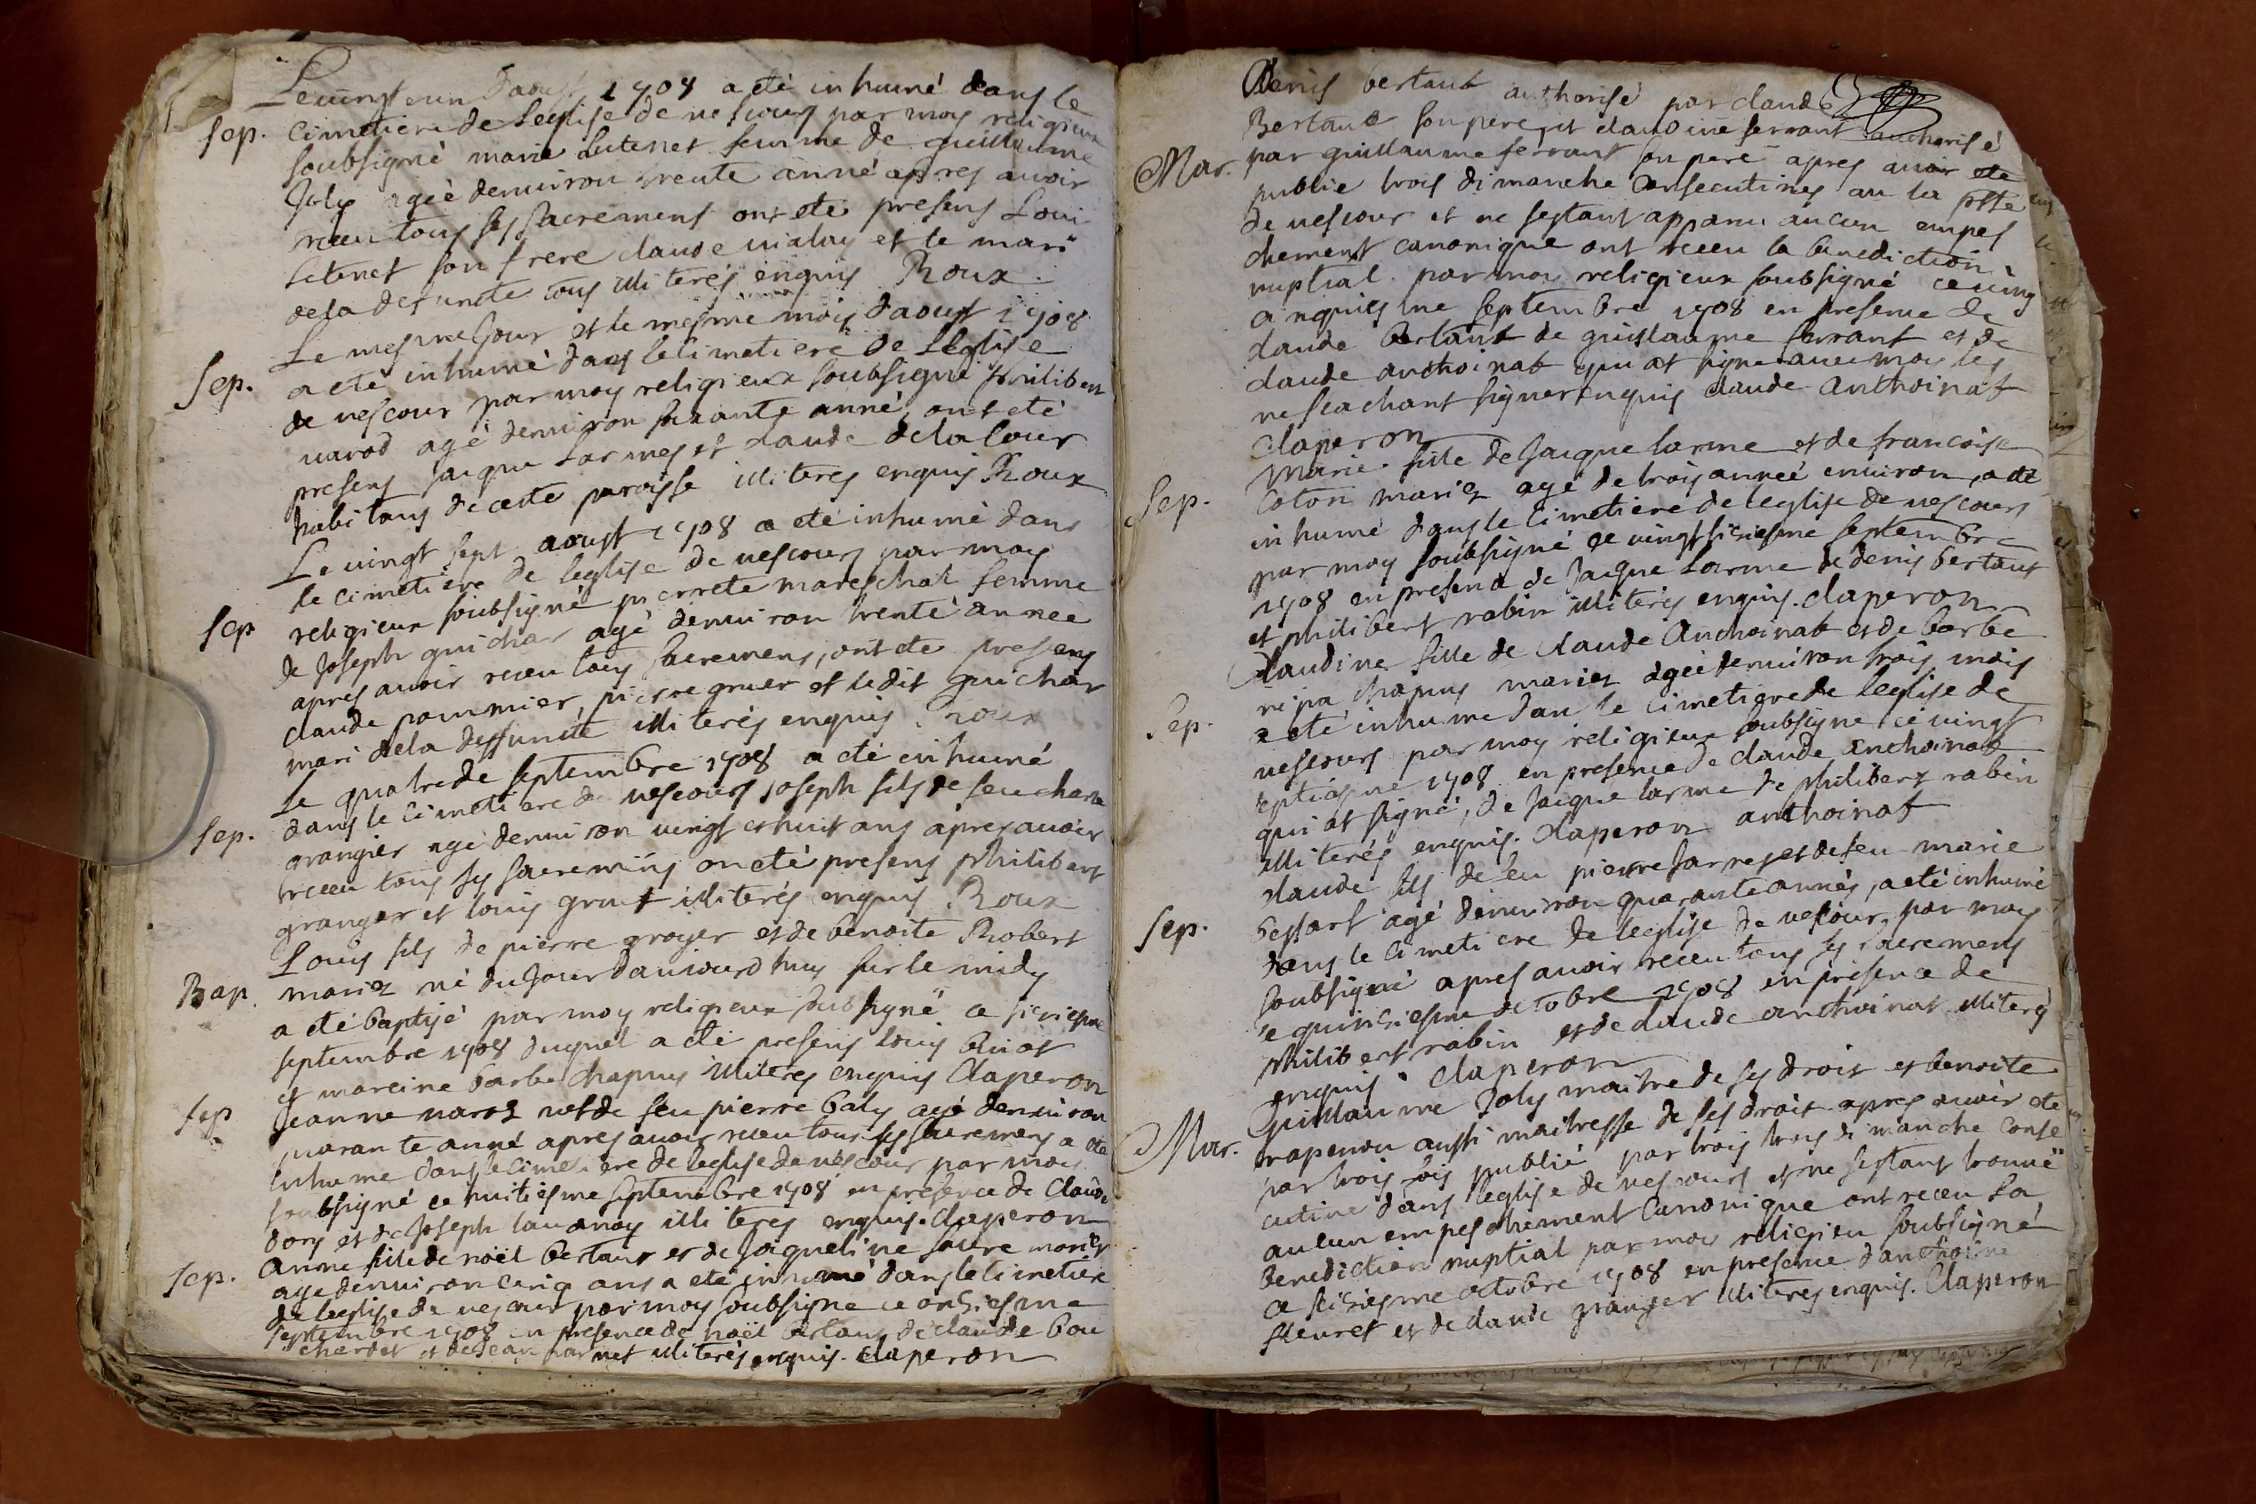 Le vingt un d'aoust 1708 a eté inhumé dans le
Sep. Cimetiere de leglise de vescours par moy religieux
soubsigné marie Lutenet femme de guillaume
Joly agée denviron trente anné apres avoir
receu tous ses sacremens ont eté presens Loui
Lutenet son frere claude vialay et le mari
de la defuncte tous illiterés enquis Roux
Le mesme Jour et le mesme mois daoust 1708
Sep. a eté inhumé dans le Cimetiere de Leglise
de vescour par moy religieux soubsigné philibert
varod agé denviron soixante anné, ont eté
presens Jaque Larmes et claude de la Cour
habitans de cette paroisse illiteres enquis Roux
Le vingt sept aoust 1708 a eté inhumé dans
le cimetiere de leglise de vescours par moy
Sep religieux soubsigné pierrete mareschal femme
de Joseph guichar agé denviron trente année
apres avoir receu tous sacremens, ont ete presens
claude pommier, pierre gruer et ledit guichar
mari de la deffuncte illiterés enquis. roux
Le quatre de septembre 1708 a eté inhumé
Sep. dans le Cimetiere de vescours Joseph fils de feu charle
grangier agé denviron vingt et huit ans apres avoir
receu tous ses sacremens on eté presens philibert
granger et louis grut illiterés enquis Roux
Louis fils de pierre groyer et de benoite Robert
Bap. mariez né du Jour daujourdhuy sur le midy
a eté baptisé par moy religieux subsigné ce siziesme
septembre 1708 duquel a eté presens louis Guiot
et mareine barbe chapuis illiterés enquis Claperon
Sep Jeanne varoz vef de feu pierre baly agé denviron
quarante anné apres avoir receu tous ses sacremens a eté
inhume dans le cimetiere de leglise de vescour par moy
soubsigné ce huitiesme septembre 1708 en presence de Claude
dory et de Joseph lauanoy illiterés enquis. claperon
Sep. Anne fille de noël bertaut et de Jaqueline faure mariez
age denviron cinq ans a eté inhumé dans le Cimetiere
de leglise de vescour par moy soubsigne ce onsiesme
septembre 1708 en presence de noël bertaut de claude bou
cherdet et de Jean parnet illiterés enquis. claperon
Denis bertaut authorisé par claude
Bertaut son pere et claudine ferrant authorisé
Mar. par guillaume ferrant son pere apres avoir ete
publie trois dimanche Consecutives au la psse
de vescour et ne sestant apparu aucun empes
chement canonique ont receu la benediction
nuptial par moy religieux soubsigné ce ving
cinquiesme septembre 1708 en presence de
claude bertaut de guillaume ferrant et de
claude anthoinat qui at signe avec moy les
ne scachant signer enquis claude anthoinat
claperon
Marie fille de Jaque larme et de francoise
Sep. Coton mariez agé de trois anneé environ, a eté
inhumé dans le Cimetiere de leglise de vescours
par moy soubsigné ce vingt siziesme septembre
1708 en presence de Jaque Larme de denis bertaut
et philibert rabin illiterés enquis. claperon
Claudine fille de claude Anthoinat et de barbe
nipa chapuis mariez agée denviron trois mois
Sep. a eté inhume dan le cimetiere de leglise de
vescours par moy religieux soubsigne ce vingt
septiesme 1708 en presence de claude Anthoinat
qui at signé, de Jaque larme de philibert rabin
illiterés enquis. claperon anthoinat
Claude fils de feu pierre Jarnes et de feu marie
Sep. bessart agé denviron quarante annés, a eté inhumé
dans le Cimetiere de leglise de vescour par moy
soubsigné apres avoir receu tous ses sacremens
ce quinziesme octobre 1708 en presence de
philibert rabin et de claude anthoinat illiterés
enquis. claperon
Guillaume Joly maitre de ses droit et benoite
Mar. rapenou aussi maitresse de ses drois apres avoir ete
par trois fois publié par trois trois dimanche conse
cutive dans leglise de vescours et ne sestant trouvé
aucun empeschement Canonique ont receu La
Benediction nuptial par moy religieu soubsigné
ce siziesme octobre 1708 en presence danthoine
fleuret et de claude granger illiteres enquis. Claperon